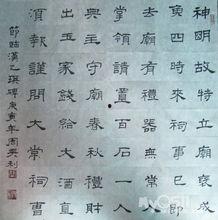 神明故特立廟褒成
侯四時來祠事已即
去廟有禮器無常人
掌領請置百石一人
典主守廟春秋禮財
出王家錢給大酒直
須報謹問大常祠曹
節臨漢乙瑛碑庚寅年周英利